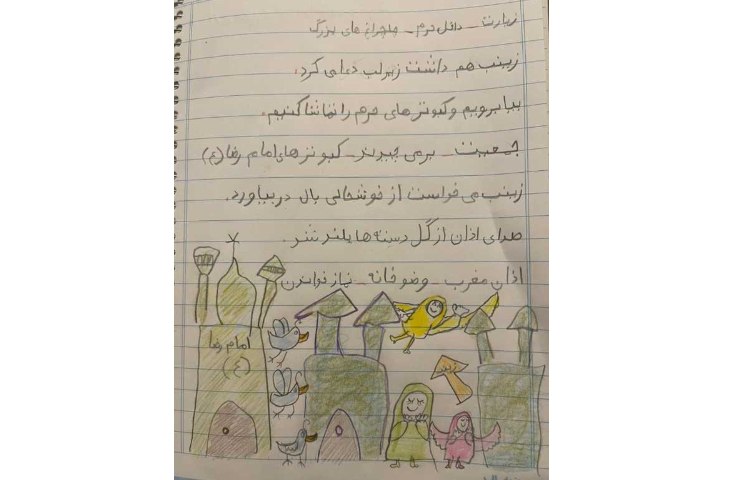 زیارت - داخل حرم - چلچراغ های بزرگ
زینب هم داشت زیر لب دعا می کرد.
بیا برویم و کبوترهای حرم را تماشا کنیم.
جمعیت - بر می چیدند - کبوترهای امام رضا (ع)
زینب می خواست از خوشحالی بال در بیاورد.
صدای اذان از گل دسته ها بلند شد.
اذان مغرب - وضو خانه - نماز خواندن
امام رضا
(ع)